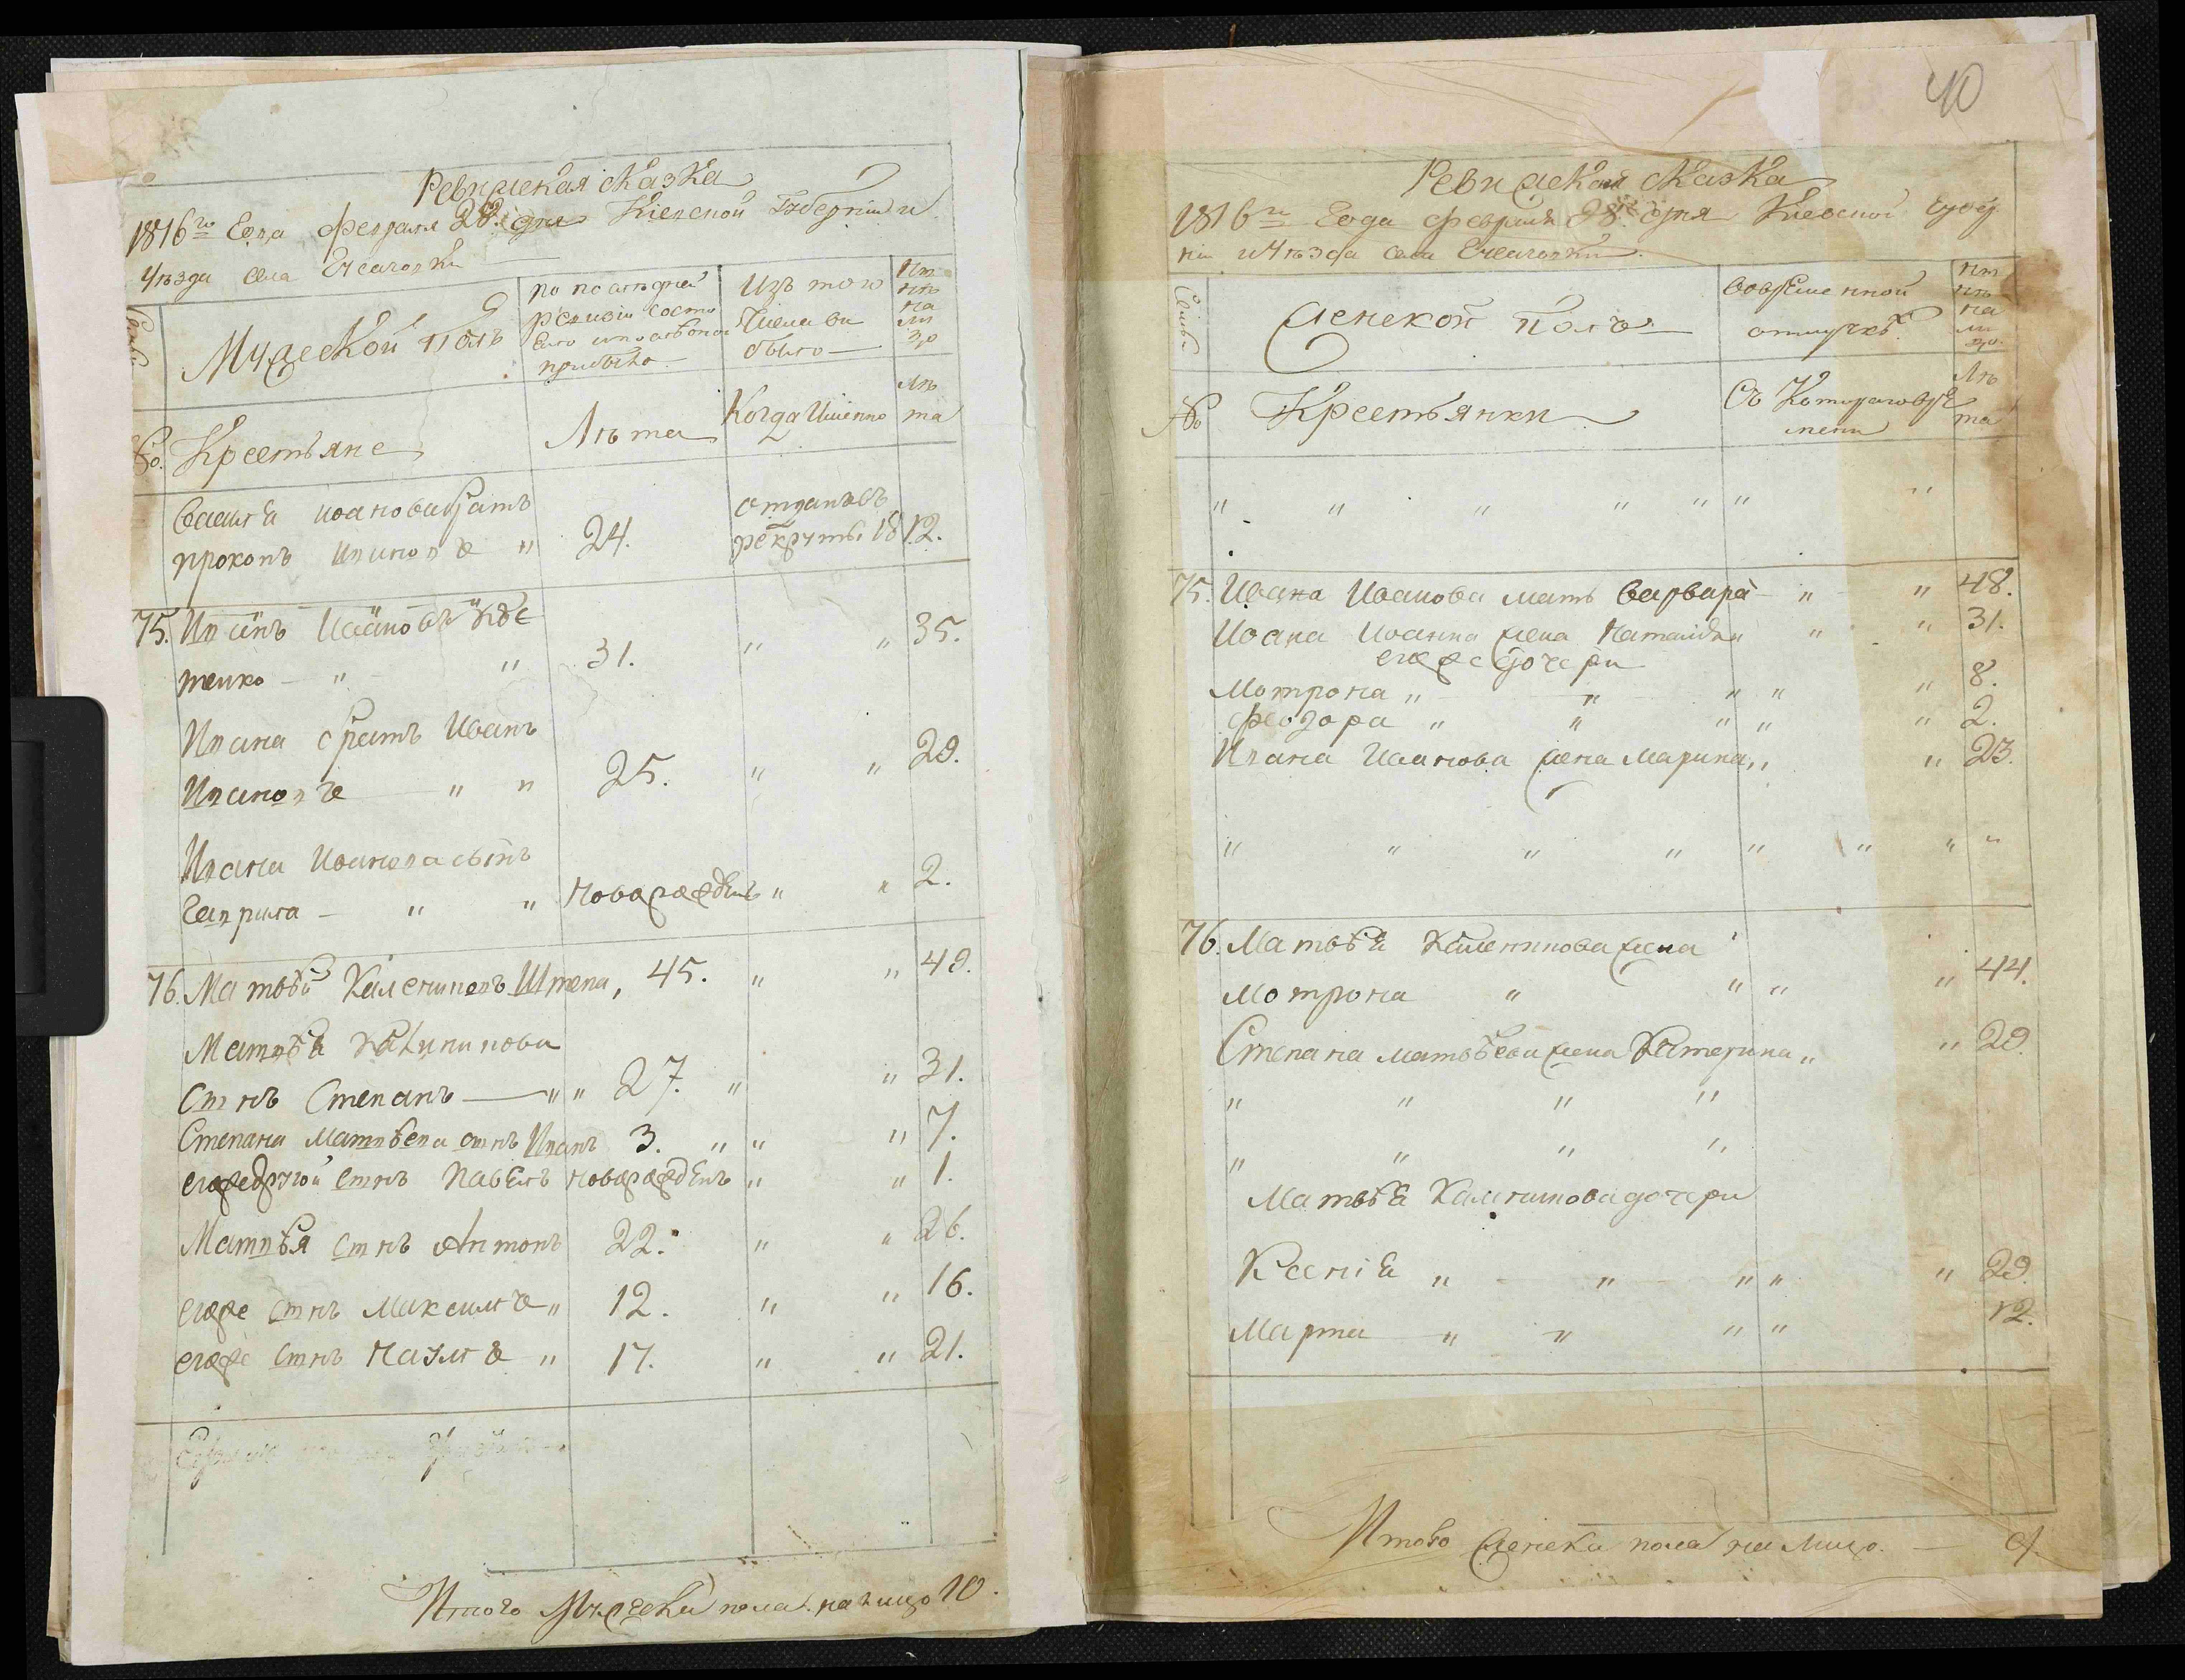 Ревижская сказка
1816го Года февраля 28. дня Кіевской Губерніи и
Уѣзда села
Мужеской полъ
по последней ревизіи состояло и после оной прибыло
Изъ того числа выбыло
Ны не на ли цо
№. Крестьяне
Лѣта
Когда Именно
Лѣ та
Иванова братъ
отданъ въ
прокопъ Ивановъ " 24. рекруты 1812.
75. Иванъ Ивановъ
" " 31. " " 35.
Ивана братъ Иванъ
Ивановъ " " 25. " " 29.
Ивана Иванова сынъ
Гаврила " " новорожденъ " " 2.
76. Матвѣй Калениковъ Штепа, 45. " " 49.
Матвѣя Калиникова
Сынъ Степанъ " " 27. " " 31.
Степана Матвѣева сынъ Иванъ 3. " " " 7.
егожедругой сынъ Павелъ новорожденъ " " 1.
Матвѣя сынъ Антонъ 22. " " 26.
егоже сынъ Максимъ " 12. " " 16.
егоже сынъ Наумъ " 17. " " 21.
Итого Мужеска пола на лицо 10.
40
Ревижская сказка
1816го Года февраля 28. дня Киевской Губер
ніи и Уѣзда села
Семьи
Женской полъ
вовременной отлучкѣ
Ны нѣ на ли цо.
№ Крестьянки
Съ Котораго вре мени
Лѣ та
" " " " " " "
75. Ивана Иванова мать Варвара " " 48.
Ивана Иванова жена Наталия " " 31.
егоже дочери
Мотрона " " " " " 8.
Феодора " " " " " 2.
Ивана Иванова жена Марина " " 23.
" " " " " " " "
76. Матвѣя Каленикова жена
Мотрона " " " " 44.
Степана Матвѣева жена Катерина " " 29.
" " " "
" " " "
Матвѣя Каленикова дочери
Ксенія " " " " " 29.
Марта " " " " 12.
Итого женска пола на лицо. 9.